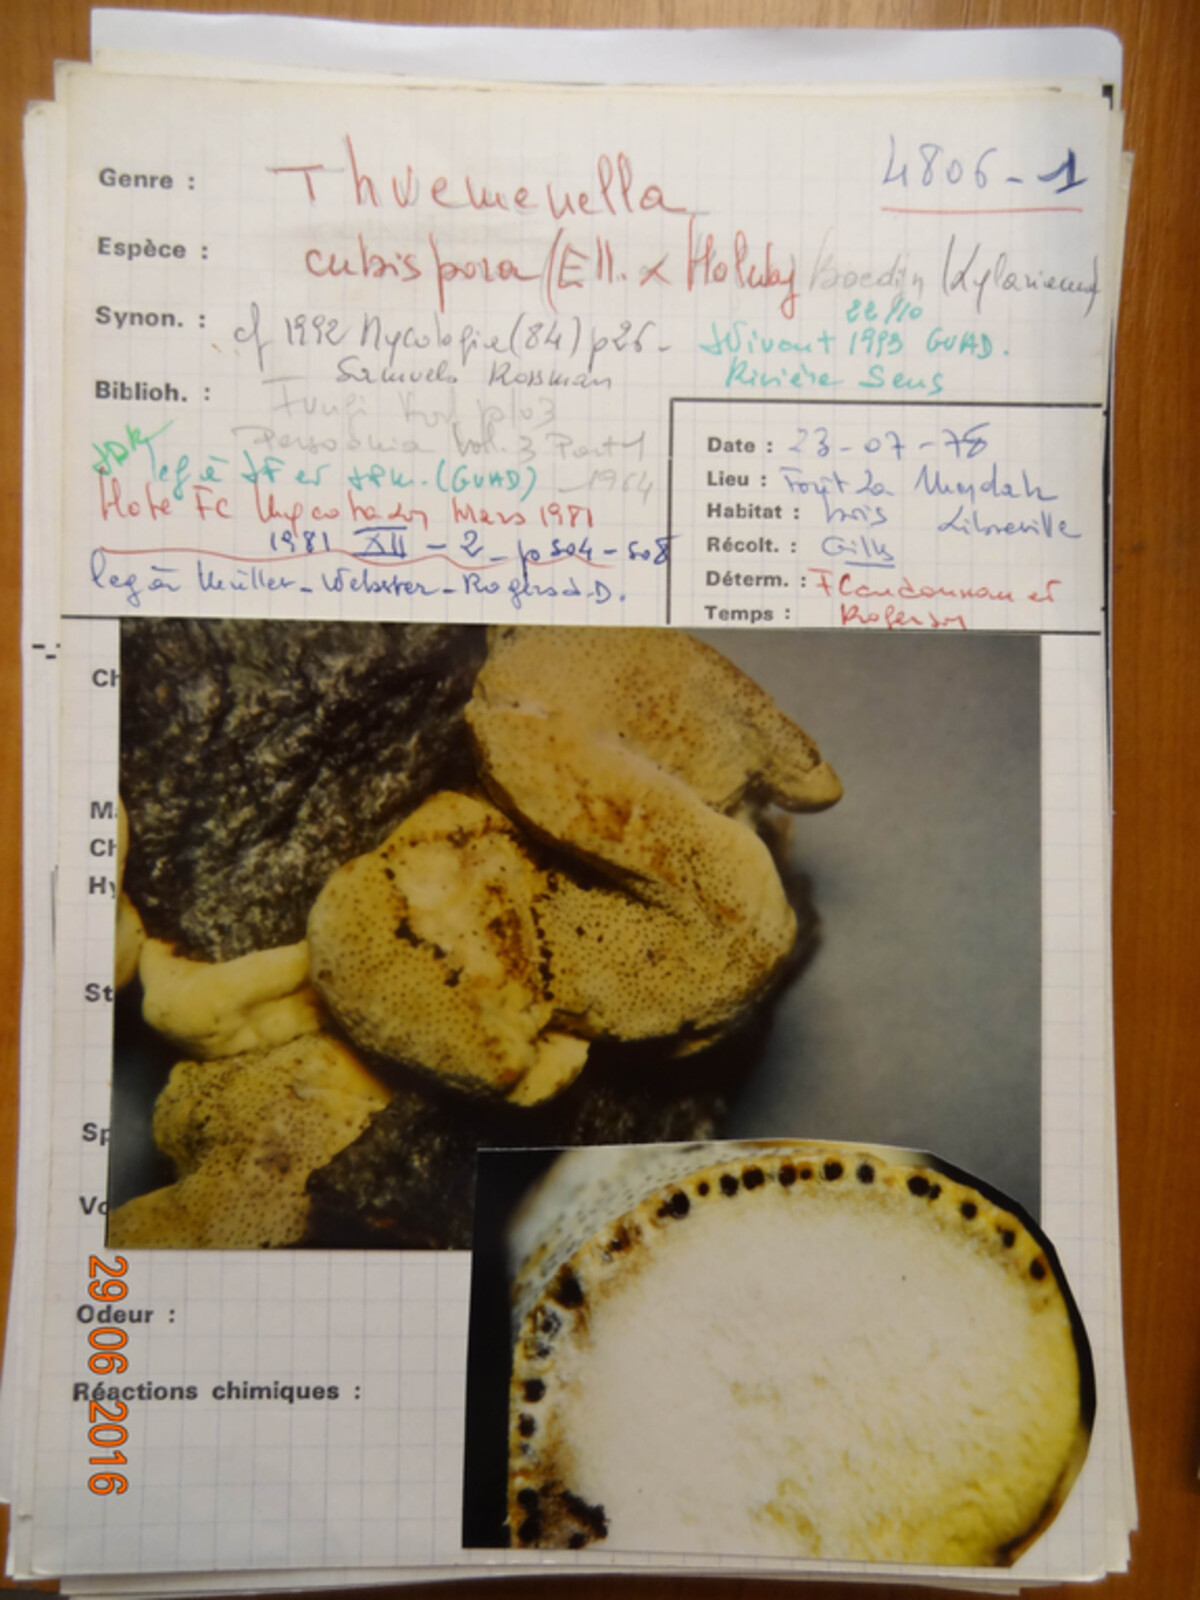 4806-1
Genre : Thuemenella
Espèce : cubispora (Ell. & Holway) Boedijn (Xylariaceae)
Synon. : cf 1992 Mycologia (84) p26-
Samuels Rossman
22/10
JVivant 1993 GUAD.
Rivière Sens
Biblioh. :
Persoonia Vol. 3 Part 1
1964
leg à JF et JPK. (GUAD)
Note FC Mycotaxon Mars 1981
1981 XII - 2 - p 504-508
leg à Müller - Webster - Rogers J.D.
Date : 23-07-78
Lieu : Forêt La Mondah
Libreville
Habitat : bois
Récolt. : Gilles
Déterm. : FCandoussau et
Rogerson
Temps :
Ch
M
Ch
Hy
St
Sp
Vo
Odeur :
Réactions chimiques :
29 06 2016